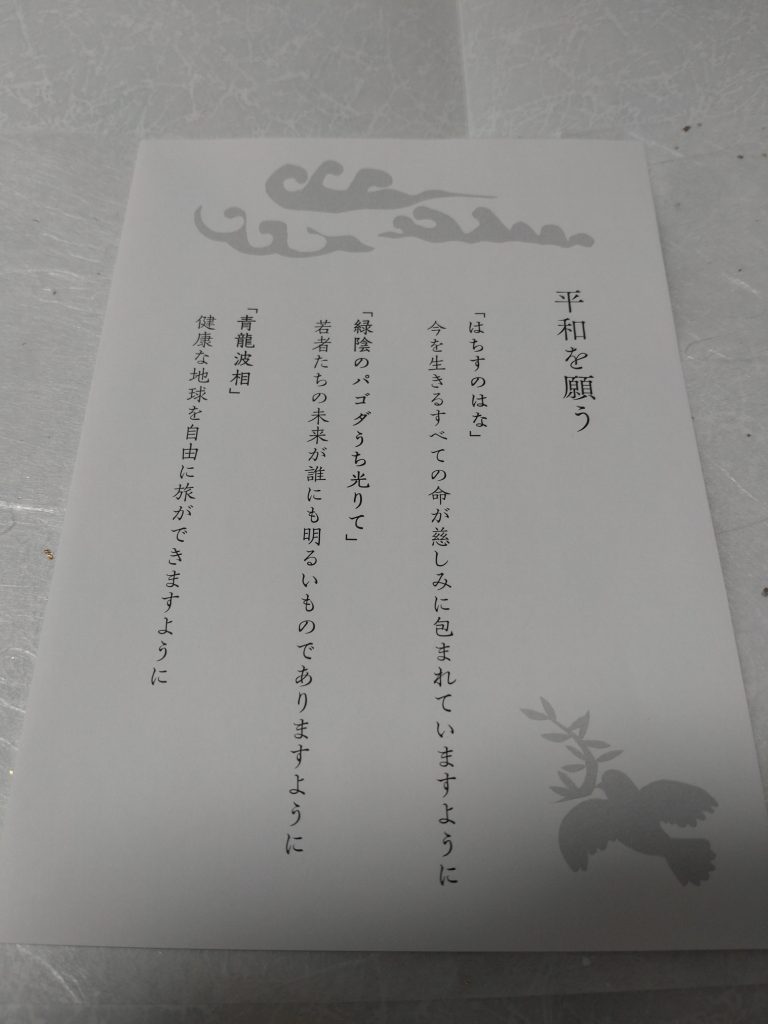 平和を願う
「はちすのはな」
今を生きるすべての命が慈しみに包まれていますように
「緑陰のパゴダうち光りて」
若者たちの未来が誰にも明るいものでありますように
「青龍波相」
健康な地球を自由に旅ができますように